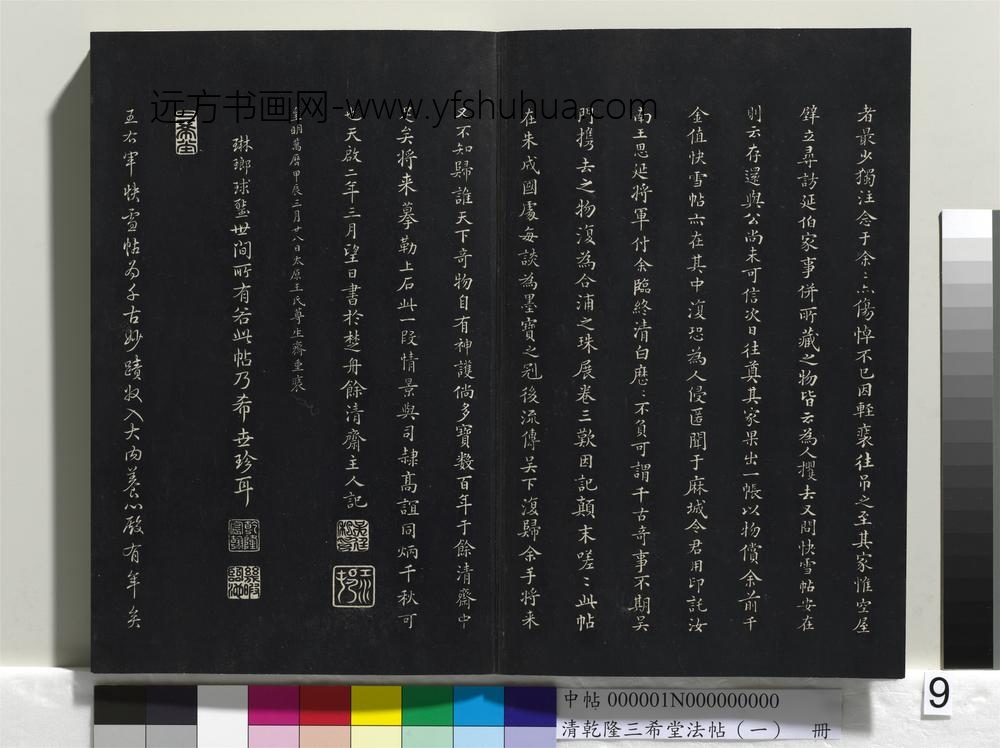 者最少獨注念于余余亦傷悼不已因輕裘往吊之至其家惟空屋
壁立尋訪延伯家事併所藏之物皆云為人攫去又問快雪帖安在
則云存還與公尚未可信次日往奠其家果出一帳以物償余前千
金值快雪帖亦在其中復恐為人侵匿聞于麻城令君用印託汝
南王思延將軍付余臨終清白歷歷不負可謂千古奇事不期吳
門攜去之物復為合浦之珠展卷三歎因記顛末嗟嗟此帖
在朱成國處每談為墨寶之冠後流傳吳下復歸余手將來
又不知歸誰天下奇物自有神護倘多寶數百年于餘清齋中
足矣將來摹勒上石此一段情景與司隷高誼同炳千秋可
也天啟二年三月望日書於楚舟餘清齋主人記
皇明萬曆甲辰三月廿八日太原王氏尊生齋重裝
琳瑯球璧世間所有若此帖乃希世珍耳
三希堂
王右軍快雪帖為千古妙蹟收入大內養心殿有年矣
远方书画网-www.yfshuhua.com
中帖 000001N000000000
清乾隆三希堂法帖（一） 冊
9